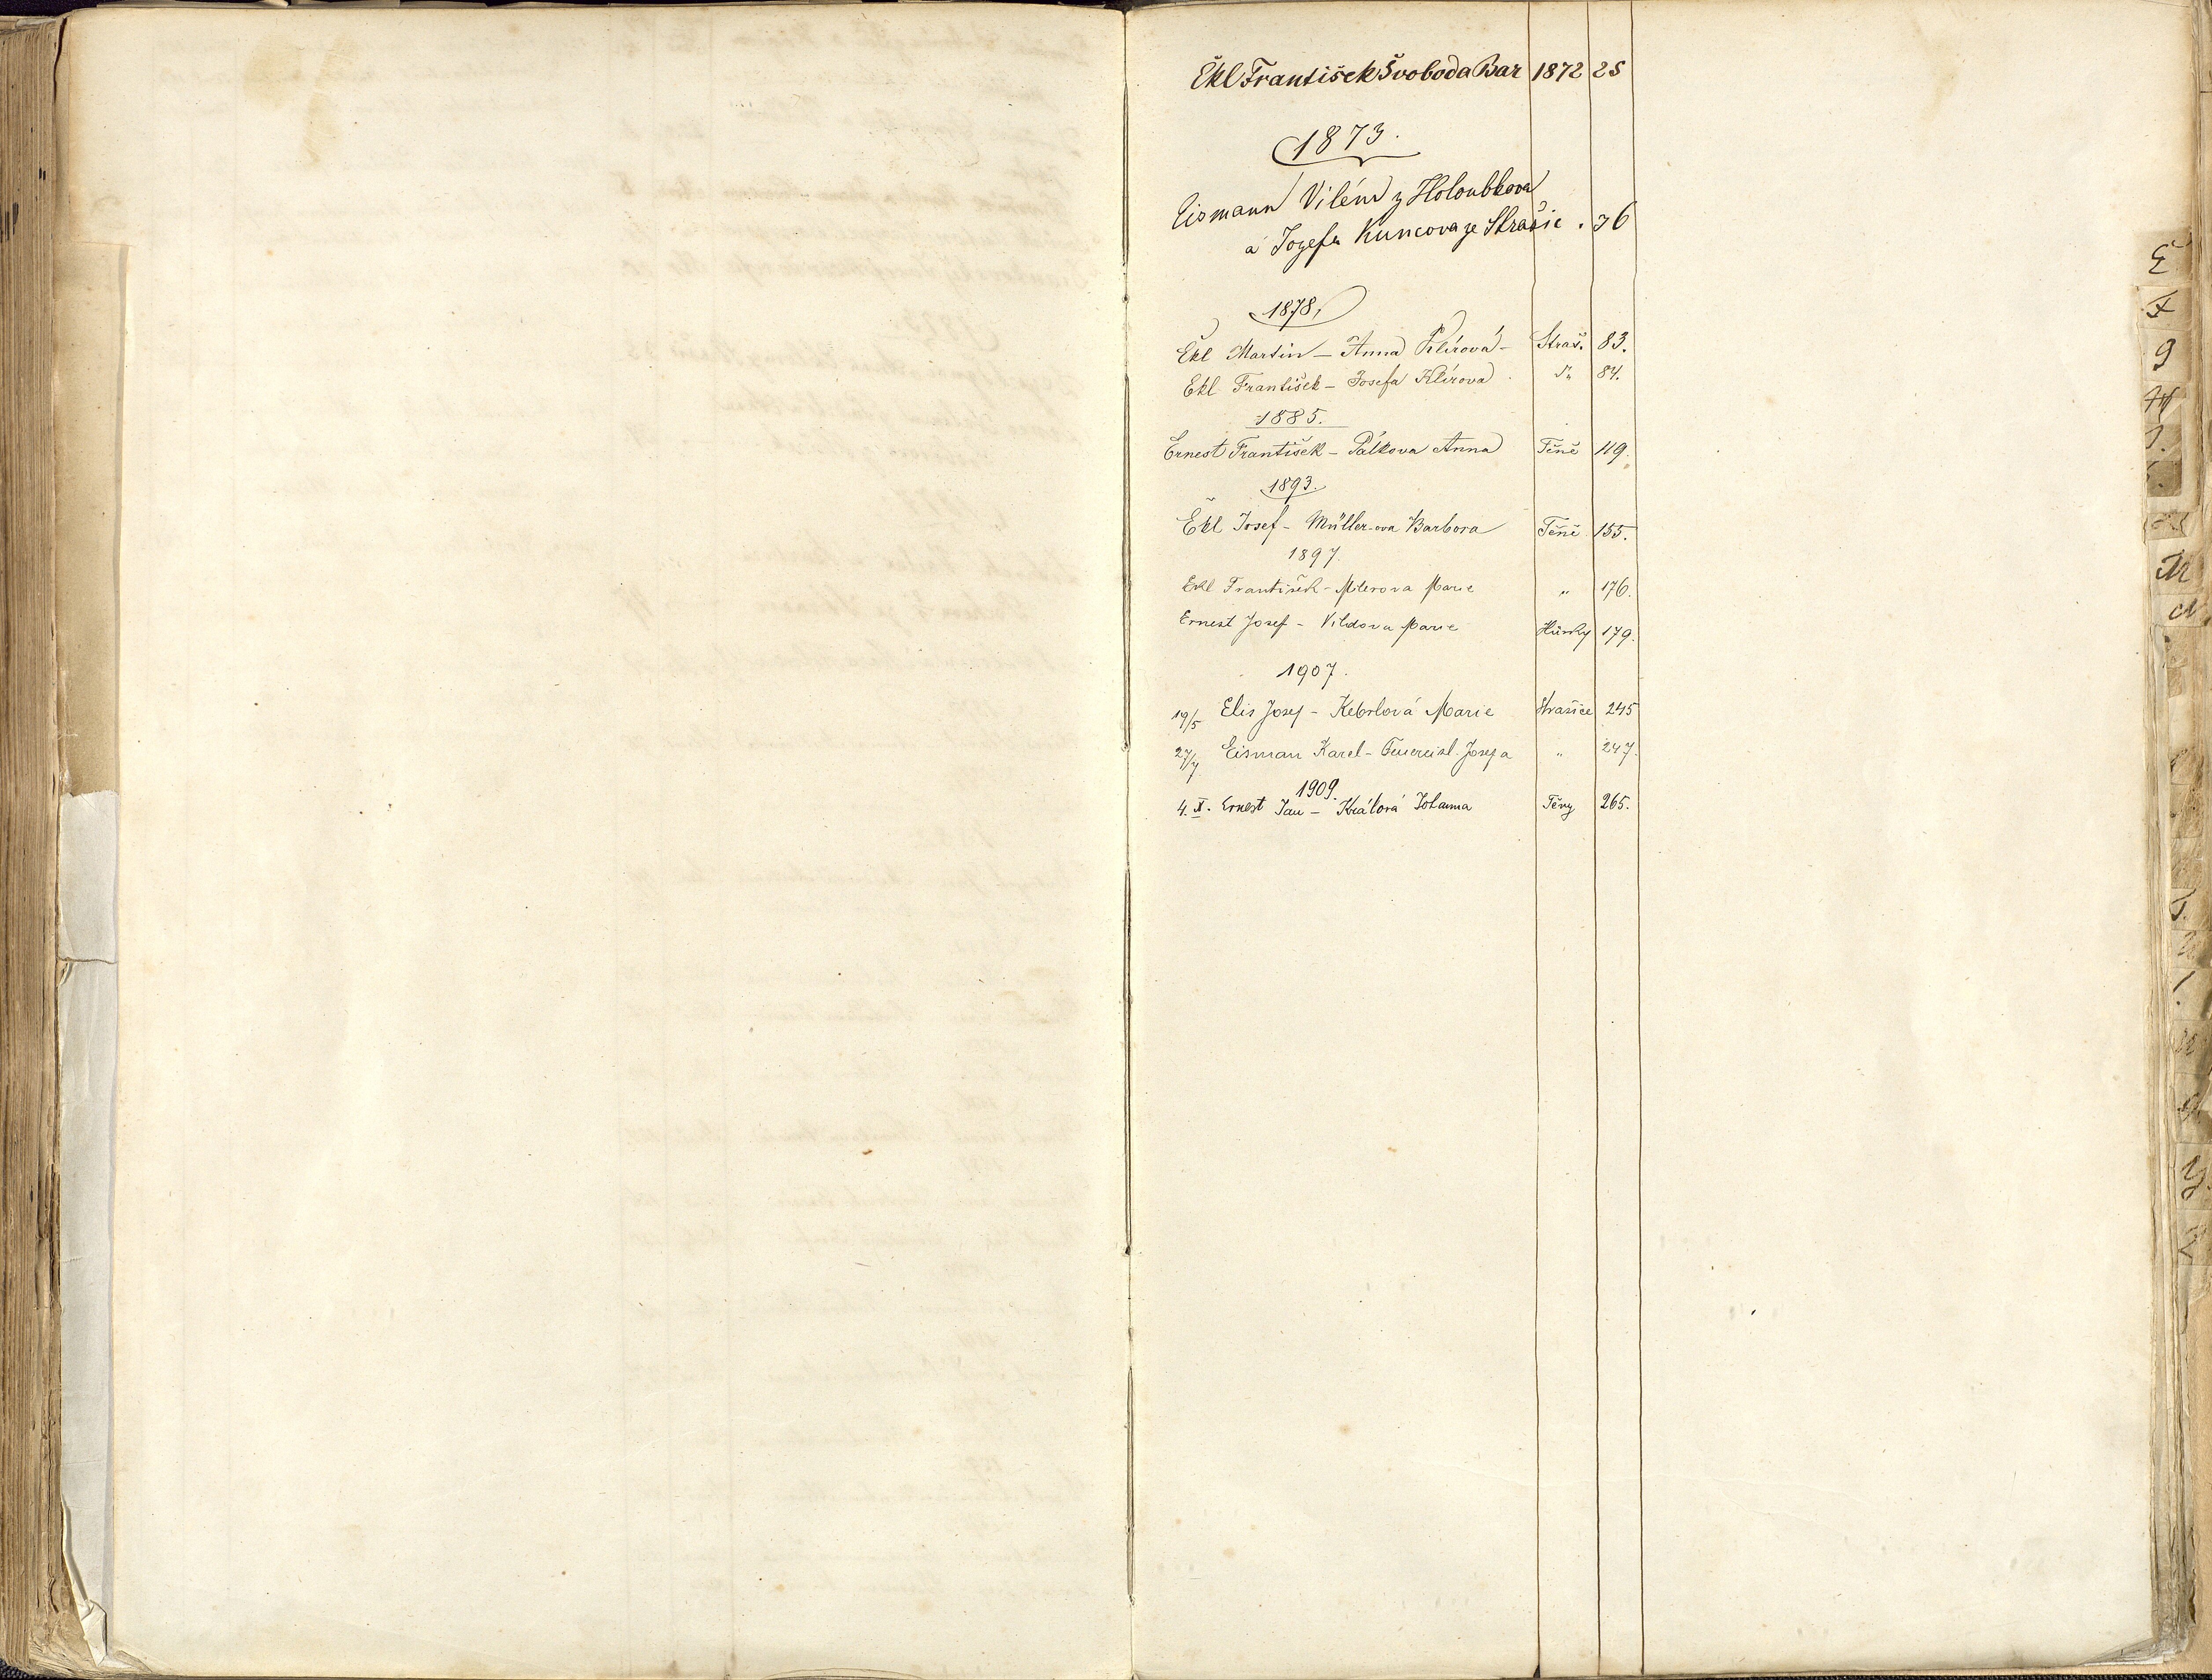 Ékl František Švoboda Bar 1872 25
1873.
Eismann Vilém z Holoubkova
a Jozefa Kuncova ze Strašic . 36
1878.
Ekl Martin – Anna Klírová – Straš. 83.
Ekl František – Josefa Klírova d. 84.
1885.
Ernest František – Pálkova Anna Těně 119.
1893.
Ekl Josef – Müller-ova Barbora Těně 155.
1897.
Ekl František – Milerova Marie „ 176.
Ernest Josef – Vildova Marie Hůrky 179.
1907.
19/5 Elis Josef – Kebrlová Marie Strašice 245
27/7 Eisman Karel – Feuereisl Josefa „ 247.
1909.
4. X. Ernest Jan – Králová Johanna Těny 265.
E
F
G
H
J.
M
N
Y.